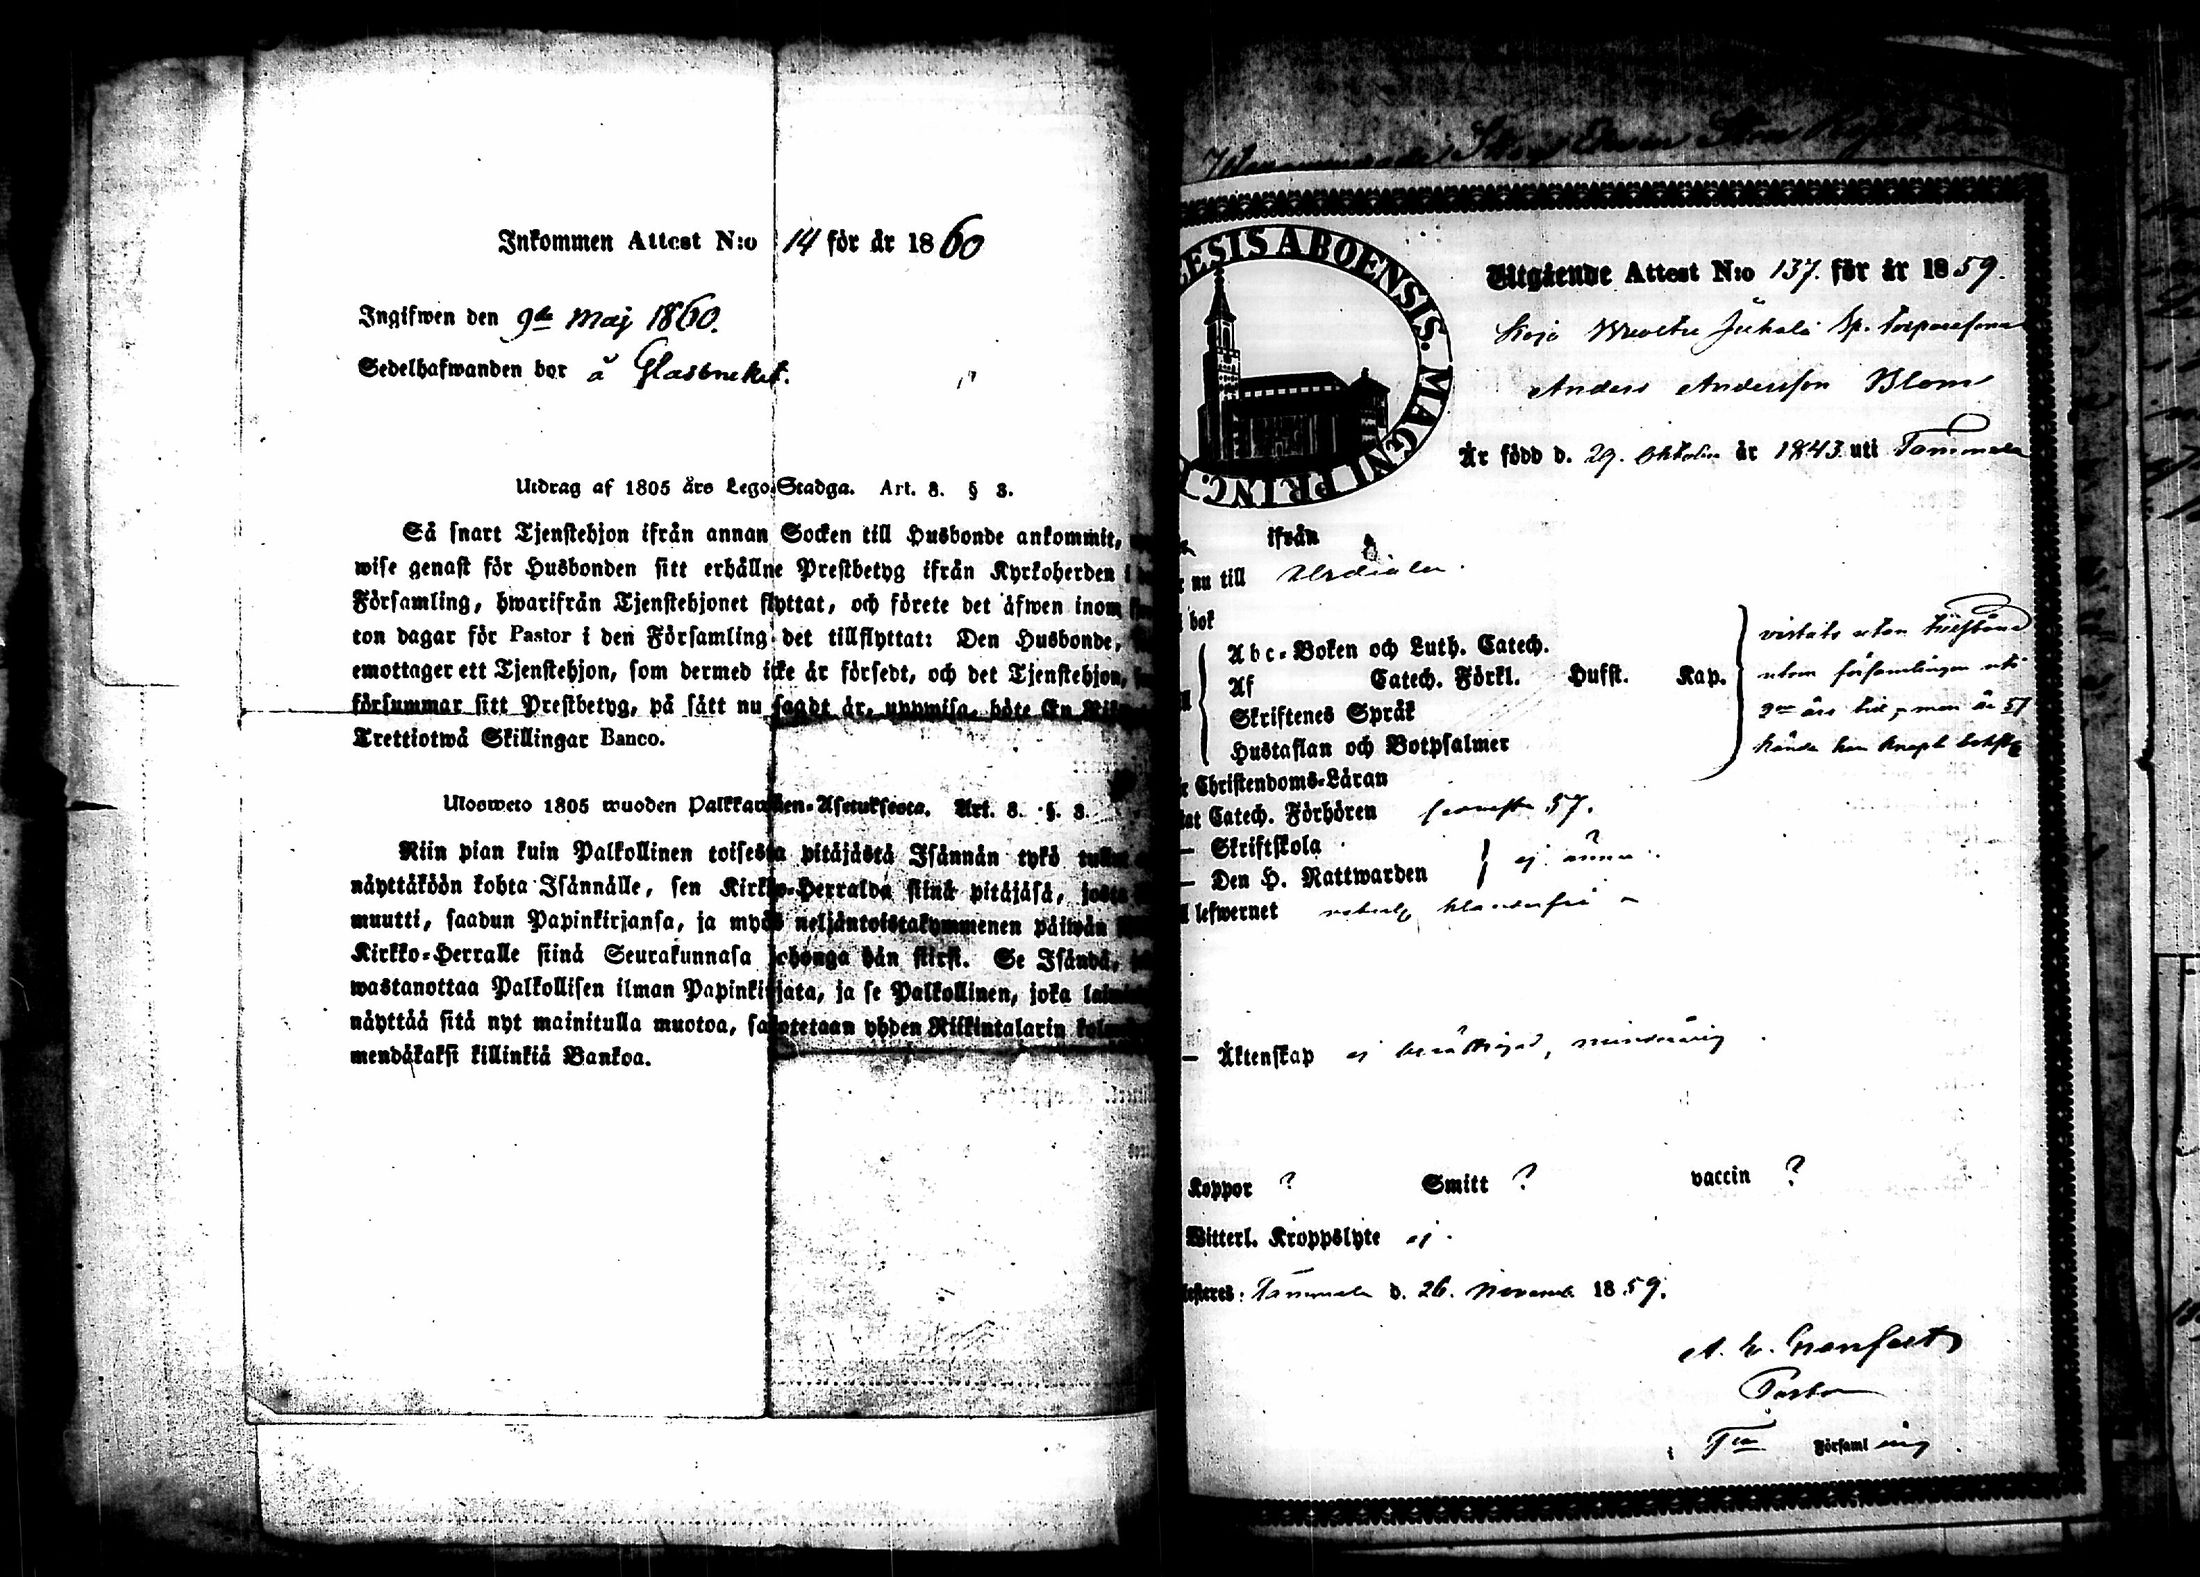 Inkommen Attest N:o 14 för år 1860
Ingifwen den 9de Maj 1860.
Sedelhafwanden bor å Glasbruket.
Utdrag af 1805 års Lego-Stadga. Art. 8. § 3.
Så snart Tjenstehjon ifrån annan Socken till Husbonde ankommit,
wise genast för Husbonden sitt erhållne Prestbetyg ifrån Kyrkoherden i
Församling, hwarifrån Tjenstehjonet flyttat, och förete det äfwen inom
ton dagar för Pastor i den Församling det tillflyttat: Den Husbonde,
emottager ett Tjenstehjon, som dermed icke är försedt, och det Tjenstehjon,
försummar sitt Prestbetyg, på sätt nu sagdt är, uppwisa, böte En
Trettiotwå Skillingar Banco.
Ulosweto 1805 wuoden Palkkawäen-Asetuksesta. Art. 8. §. 3.
Niin pian kuin Palkollinen toisesta pitäjästä Isännän tykö
näyttäköön kohta Isännälle, sen Kirkko-Herralda siinä pitäjäsä, josta
muutti, saadun Papinkirjansa, ja myös neljäntoistakymmenen päiwän
Kirkko-Herralle siinä Seurakunnasa johonga hän siirsi. Se Isändä,
wastanottaa Palkollisen ilman Papinkirjata, ja se Palkollinen, joka
näyttää sitä nyt mainitulla muotoa, sakotetaan yhden Riikintalarin
mendäkaksi killinkiä Bankoa.
ESIS ABOENSIS. MAGNI PRINC.
Utgående Attest N:o 137. för år 1859.
Anders Andersson Blom
Är född d. 29. Oktober år 1843 uti Tammela
ifrån
nu till Urdiala.
bok
Abc-Boken och Luth. Catech.
Af Catech. Förkl. Hufst. Kap.
Skriftenes Språk
Hustaflan och Botpsalmer
vistats utan
utom församlingen uti
2ne års tid, men år 57
kände han knapt
Christendoms-Läran
Catech. Förhören 57.
— Skriftskola
— Den H. Nattwarden ej ännu.
lefwernet klanderfri
— Äktenskap ej berättigad, minderårig
Koppor ? Smitt ? vaccin ?
Witterl. Kroppslyte ej.
Tammela d. 26. Novemb. 1859.
Pastor
i Församling